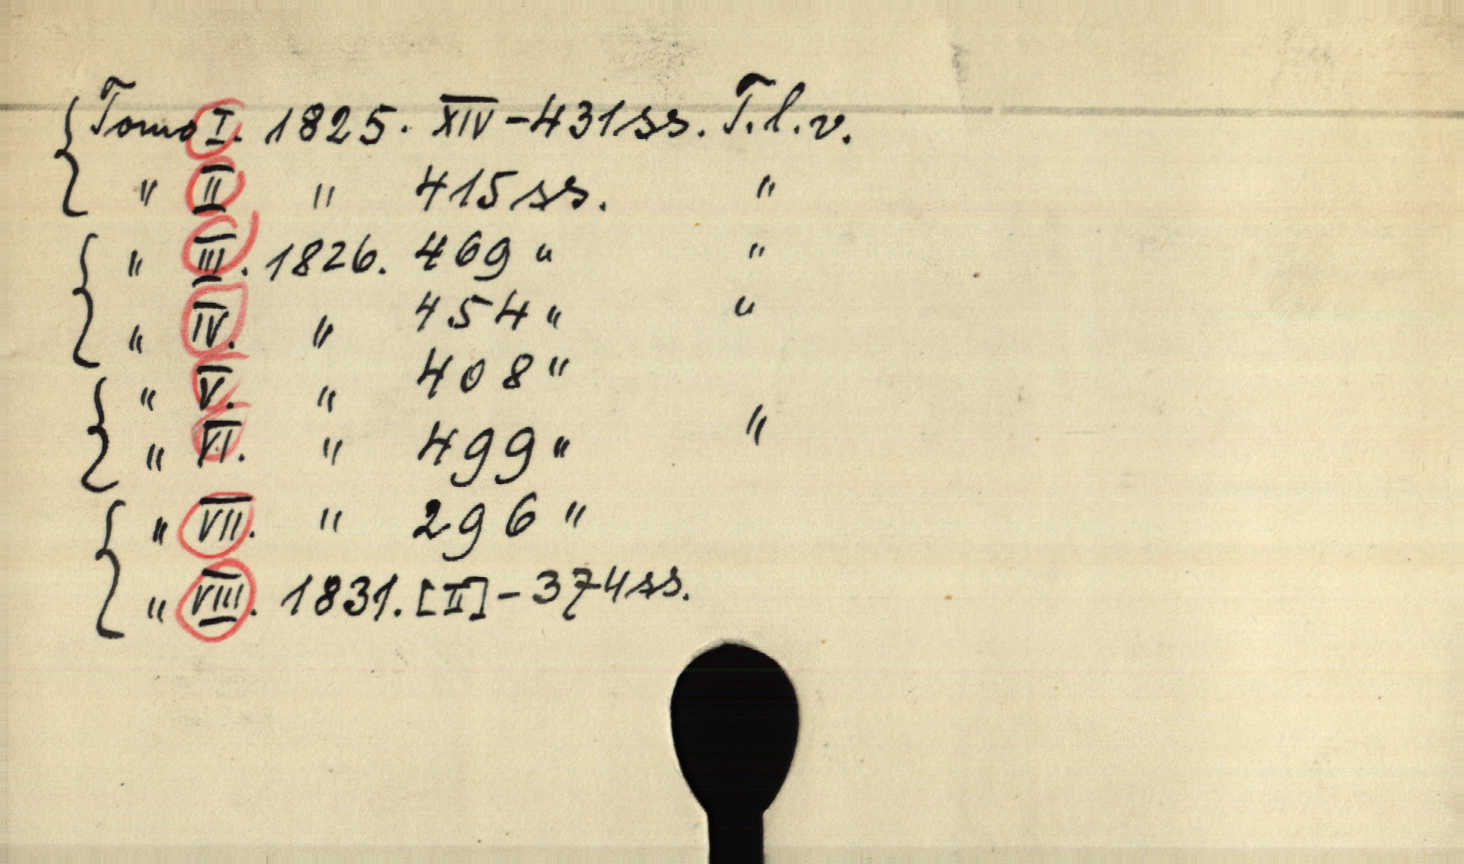 Tomo I. 1825. XIV-431 ss. T.l.v.
" II " 415 ss. "
" III. 1826. 469 " "
" IV. " 454 " "
" V. " 408 "
" VI. " 499 " "
" VII. " 296 "
" VIII. 1831. [II]-374 ss.